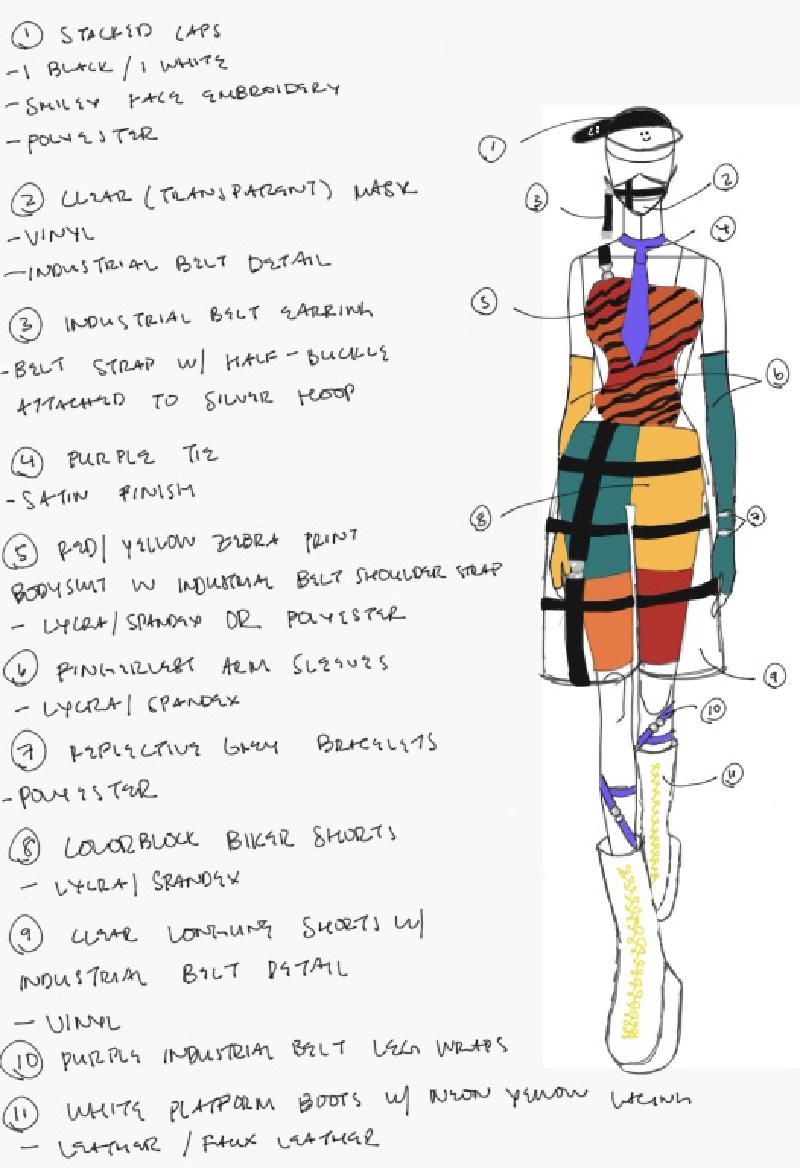 1 STACKED CAPS
- 1 BLACK / 1 WHITE
- SMILEY FACE EMBROIDERY
- POLYESTER
2 CLEAR (TRANSPARENT) MASK
- VINYL
- INDUSTRIAL BELT DETAIL
3 INDUSTRIAL BELT EARRING
- BELT STRAP W/ HALF-BUCKLE
ATTACHED TO SILVER HOOP
4 PURPLE TIE
- SATIN FINISH
5 RED/ YELLOW ZEBRA PRINT
BODYSUIT W INDUSTRIAL BELT SHOULDER STRAP
- LYCRA/SPANDEX OR POLYESTER
6 FINGERLESS ARM SLEEVES
- LYCRA/ SPANDEX
7 REFLECTIVE GREY BRACELETS
- POLYESTER
8 COLORBLOCK BIKER SHORTS
- LYCRA/ SPANDEX
9 CLEAR LONGLINE SHORTS W/
INDUSTRIAL BELT DETAIL
- VINYL
10 PURPLE INDUSTRIAL BELT LEG WRAPS
11 WHITE PLATFORM BOOTS W/ NEON YELLOW LACING
- LEATHER / FAUX LEATHER
1
2
3
4
5
6
7
8
9
10
11